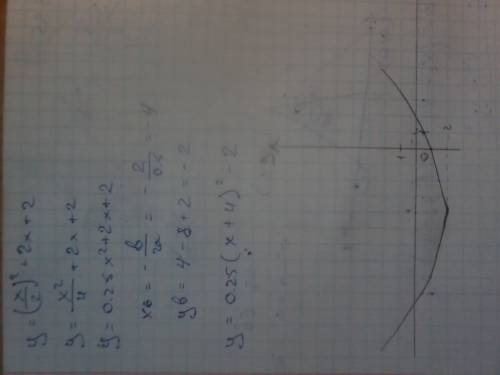 y = (x/2)² + 2x + 2
y = x²/4 + 2x + 2
y = 0.25x² + 2x + 2
xв = -в/2a = -2/0.5 = -4
yв = 4 - 8 + 2 = -2
y = 0.25(x + 4)² - 2
1
0
2